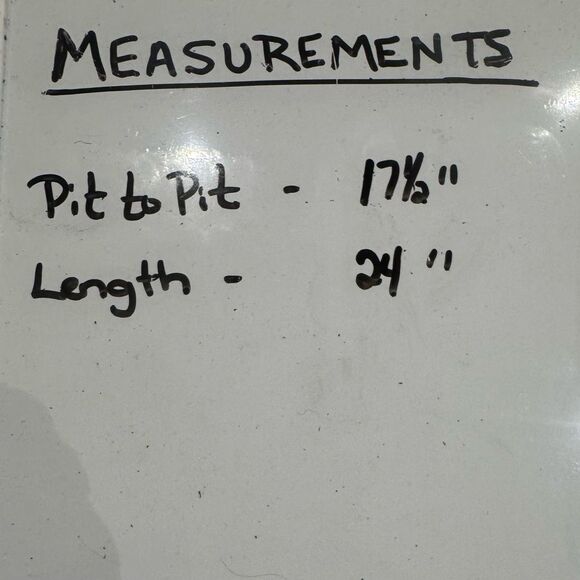 MEASUREMENTS
Pit to Pit - 17½"
Length - 24"